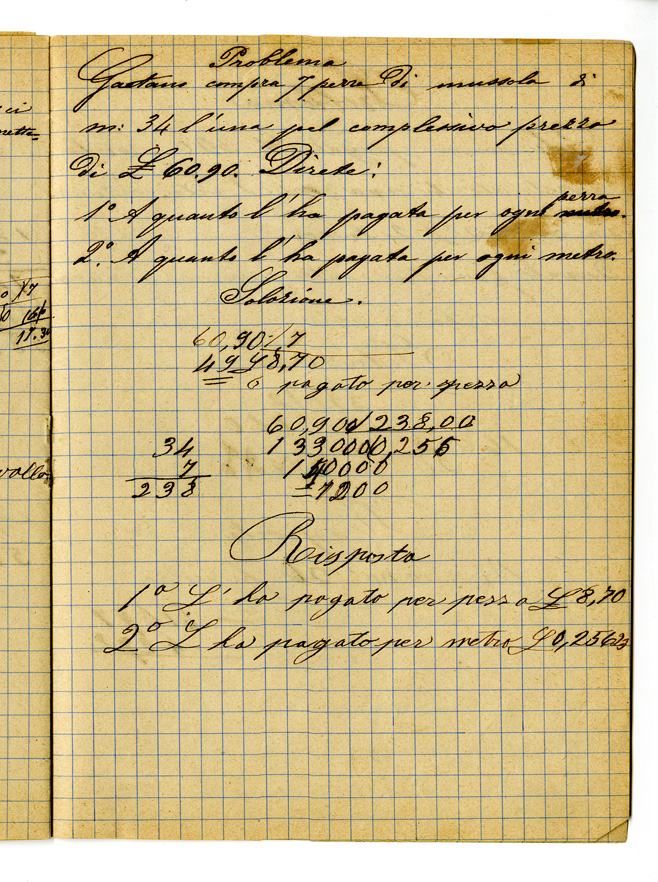 ci
netta=
Problema
Gaetano compra 7 pezze di mussola di
m: 34 l'una pel complessivo prezzo
di £ 60.90. Direte:
pezza
1º A quanto l'ha pagata per ogni metro.
2.º A quanto l'ha pagata per ogni metro.
Soluzione.
60,90 / 7
49 £8,70
0 pagato per pezza
60,900/238,00
34 1330000,255
7 140000
238 =7200
Risposta
1º L'ha pagato per pezza £8,70
2º L'ha pagato per metro £0,25
17.30
vallo